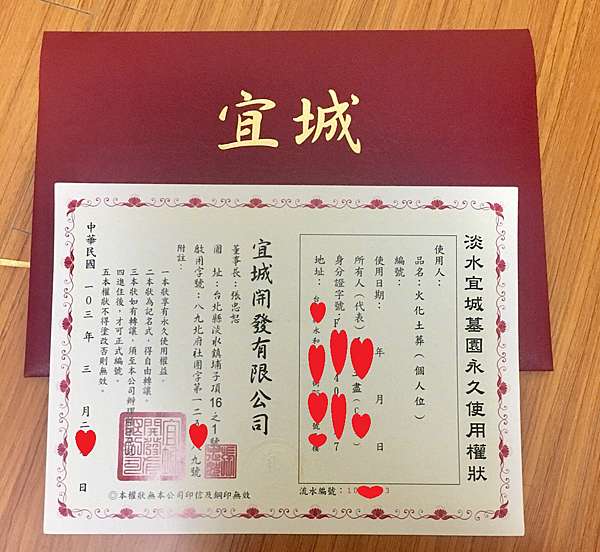 宜城
淡水宜城墓園永久使用權狀
使用人：
品名：火化土葬（個人位）
編號：
使用日期： 年 月 日
所有人（代表）
身分證字號：F 40 7
地址：台 永和 號 樓
流水編號：10 3
宜城開發有限公司
董事長：張忠恕
園 址：台北縣淡水鎮埔子頂16之1號
啟用字號：八九北府社園字第一二 八九號
附註：
一本狀享有永久使用權益。
二本狀為記名式，得自由轉讓。
三本狀如有轉讓，須至本公司辦理
四進住後，才可正式編號。
五本權狀不得塗改否則無效。
中華民國 一０三 年 三 月 二 日
◎本權狀無本公司印信及鋼印無效